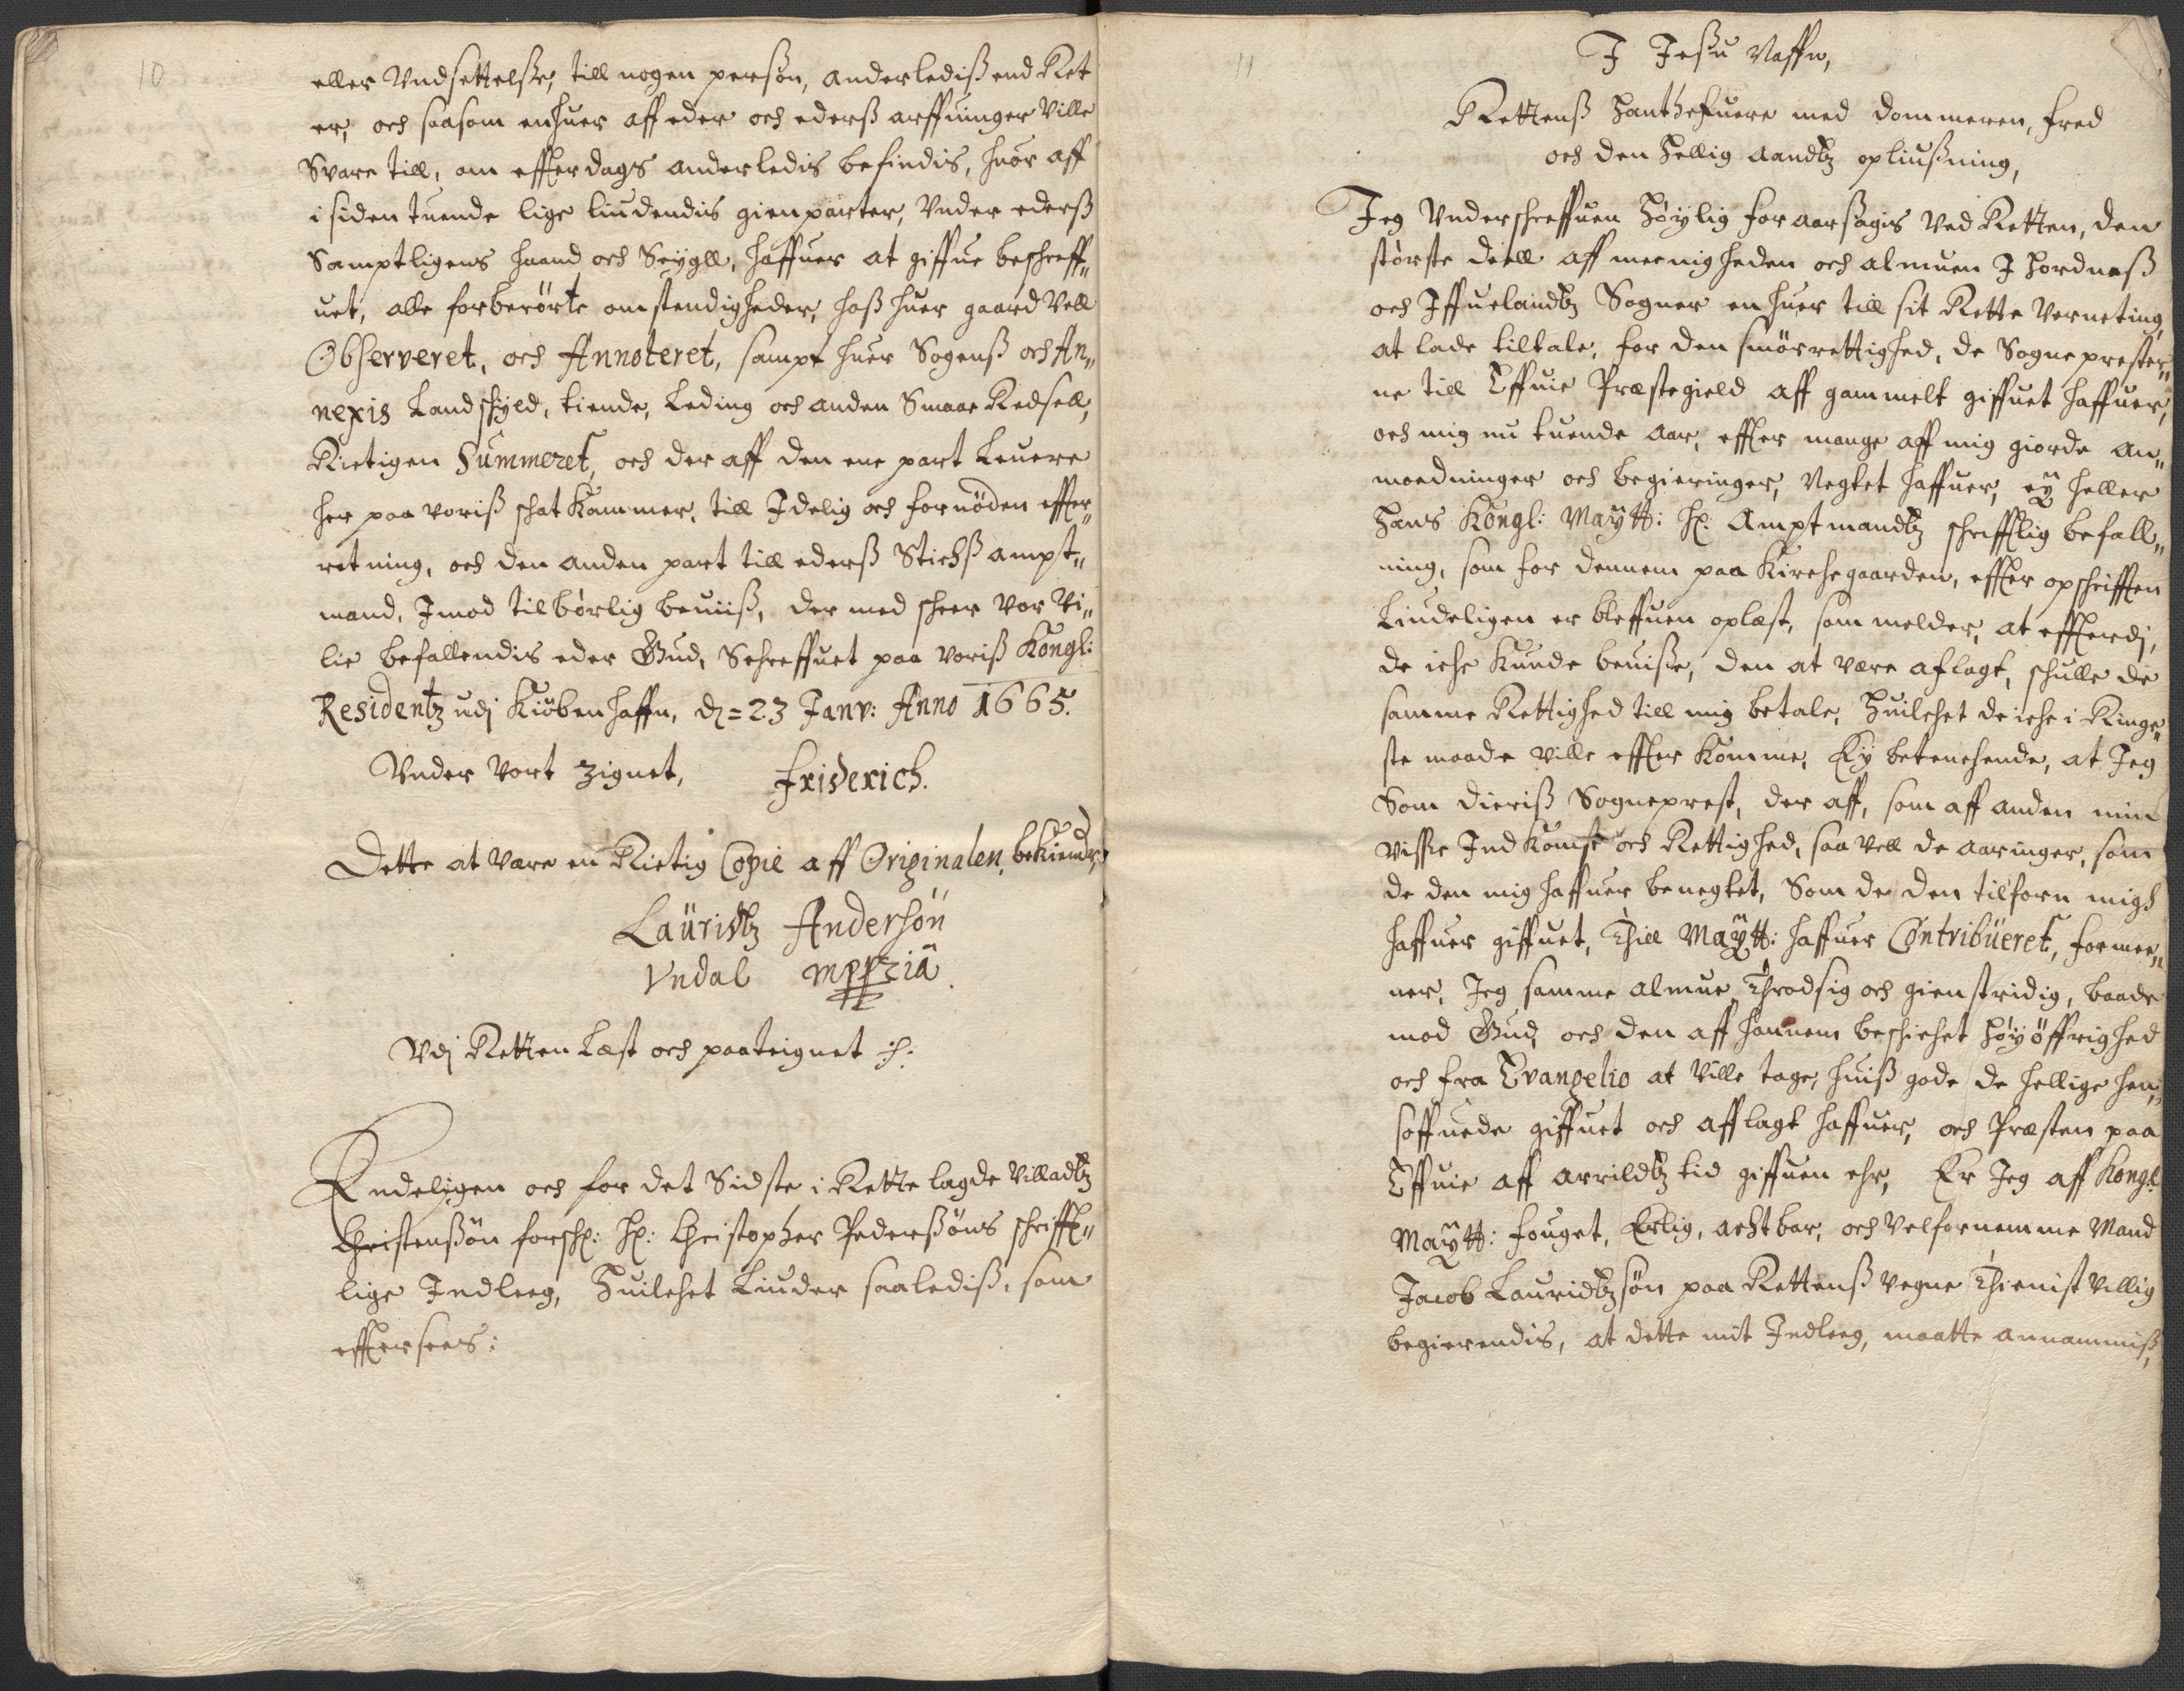 10
eller Vndsettelße, till nogen persøn, anderlediß end Ret
er, och saasom enhuer aff eder och ederß arffuinger ville
Svare till, om effterdags anderledis befindis, huor aff
i siden tuende lige liudendis gienparter, Vnder ederß
Samptligens haand och Seygll, haffuer at giffue beschreff„
uet, alle forberörte omstendigheder, hoß huer gaard Vell
Observeret, och Annoteret, sampt huer Sogenß och An„
nexis Landschyld, tiende, Leding och anden Smaae Redsell,
Rictigen Summeret, och der aff den ene part Leuere
her paa voriß schatKammer, till Idelig och fornöden effter„
retning, och den anden part till ederß Stichßampt„
mand, Imod tilbörlig beuiiß, der med scheer vor Vi„
lie befallendis eder Gud, Schreffuet paa voriß Kongl:
Residentz udj Kiöbenhaffn, dj = 23 Janv: Anno 1665.
Vnder Vort Zignet, Friderich.
Dette at være en Rictig Copie aff Originalen, bekiende,
Lauridtz Andersön
Undal mppria
Vdj Retten Læst och paateignet :/:
Endeligen och for det Sidste i Rette lagde Villadtz
Christenßön forschr: Hr: Christopher Pederßöns schrifft„
lige Indleeg, Huilchet Liuder saalediß, som
efftersees:
11
I Jeßu Naffn,
Rettenß Hanthefuere med dommeren, fred
och den Hellig aandtz opliußning,
Jeg Vnderschreffuen Höylig foraarßagis Ved Retten, den
störste deell aff meenigheden och almuen I Hordneß
och Iffuelandtz Sogner enhuer till sit Rette Verneting,
at lade tiltale, for den smörrettighed, de Sogneprester„
ne till Effuie Præstegield aff gammelt giffuet haffuer,
och mig nu tuende aar, effter mange aff mig giorde an„
moedninger och begieringer, Negtet haffuer, eÿ heller
Hans Kongl: Maÿtt: Hr: Amptmandtz schrifftlig befall„
ning, som for dennem paa Kirchegaarden, effter opschrifften
Liudeligen er bleffuen oplæst, som melder, at effterdj,
de iche Kunde beuiße, den at være aflagt, schulle de
samme Rettighed till mig betale, Huilchet de iche i Ringe„
ste maade ville effter Komme, Ey betenchende, at Jeg
Som dieriß Sogneprest, der aff, som aff anden min
visße IndKomst och Rettighed, saa vell de aaringer, som
de den mig haffuer benegtet, Som de den tilforn migh
haffuer giffuet, Thill Maÿtt: haffuer Contribüeret, formee„
ner, Jeg samme almue Throdsig och gienstridig, baade
mod Gud, och den aff hannem beschichet Höyöffrighed
och fra Evangelio at Ville tage, huiß gode de hellige hen„
soffuede giffuet och afflagt haffuer, och Præsten paa
Effuie aff arrildtz tid giffuen ehr, Er Jeg aff Kongl:
Maÿtt: fouget, Erlig, achtbar, och Velfornemme Mand
Jacob Lauridtzsön paa Rettenß vegne Thienist Villig
begierendis, at dette mit Indleeg, maatte annammiß,